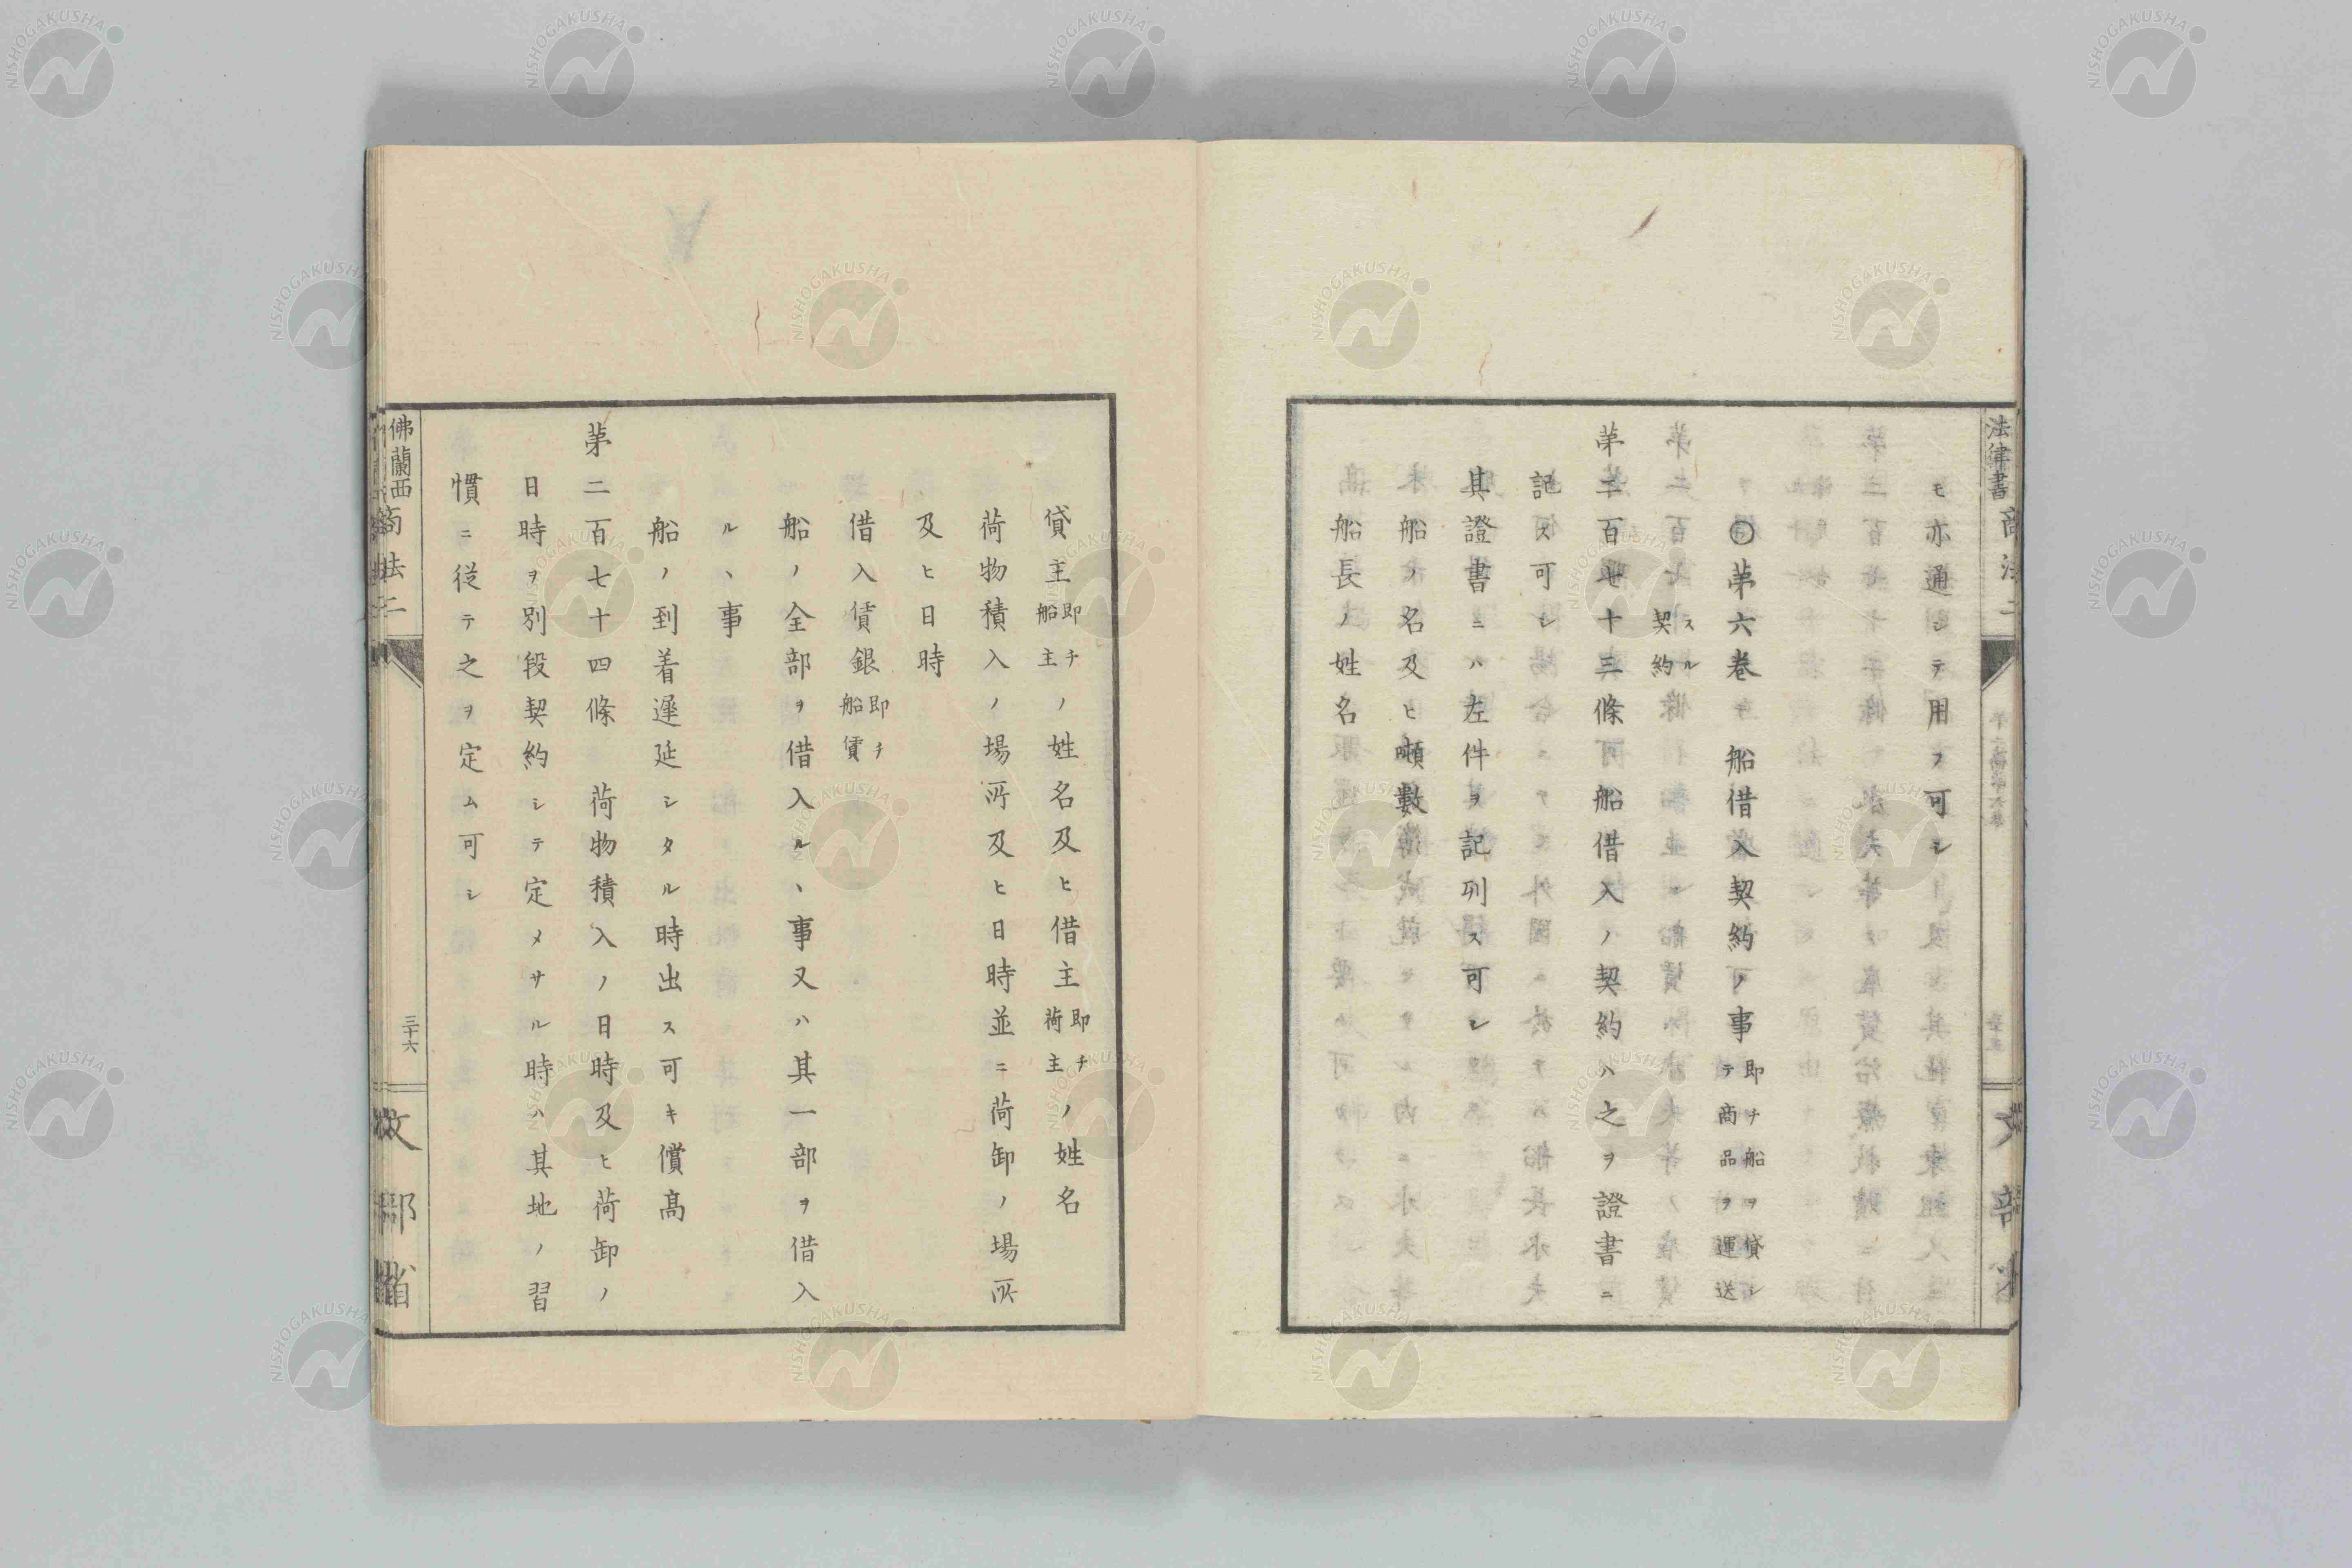 モ亦通シテ用フ可シ
〇第六巻 船借入契約ノ事即チ船ヲ貸シテ商品ヲ運送
スル契約
第二百七十三條 船借入ノ契約ハ之ヲ證書ニ
記ス可シ
其證書ニハ左件ヲ記列ス可シ
船ノ名及ヒ噸數
船長ノ姓名
法律書
文部
貸主即チ船主ノ姓名及ヒ借主即チ荷主ノ姓名
荷物積入ノ場所及ヒ日時並ニ荷卸ノ場所
及ヒ日時
借入賃銀即チ船賃
船ノ全部ヲ借入ルヽ事又ハ其一部ヲ借入
ルヽ事
船ノ到着遲延シタル時出ス可キ償高
第二百七十四條 荷物積入ノ日時及ヒ荷卸ノ
日時ヲ別段契約シテ定メサル時ハ其地ノ習
慣ニ從テ之ヲ定ム可シ
佛蘭西商法二
三十六
文部省
NISHOGAKUSHA